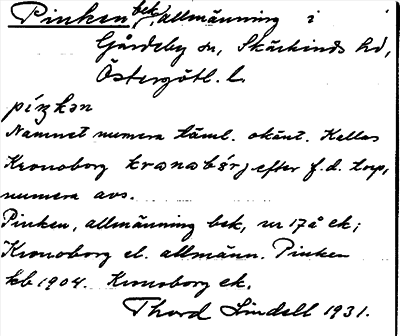 Pinken bek. allmänning i
Gårdeby sn, Skärkinds hd,
Östergötl. l.
pínkən
Namnet numera täml. okänt. Kallas
Kronoborg efter f.d. torp,
numera avs.
Pinken, allmänning bek, nr 17å ek;
Kronoborg el. allmänn. Pinken
kb 1904. Kronoborg ek.
Thord Lindell 1931.